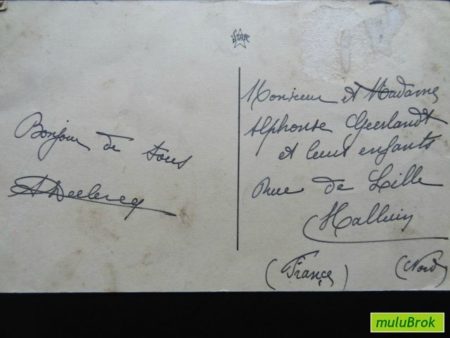 Star
Bonjour de tous
A Declercq
Monsieur et Madame
Alphonse Geerlandt
et leurs enfants
Rue de Lille
Halluin
(Nord)
(France)
muluBrok